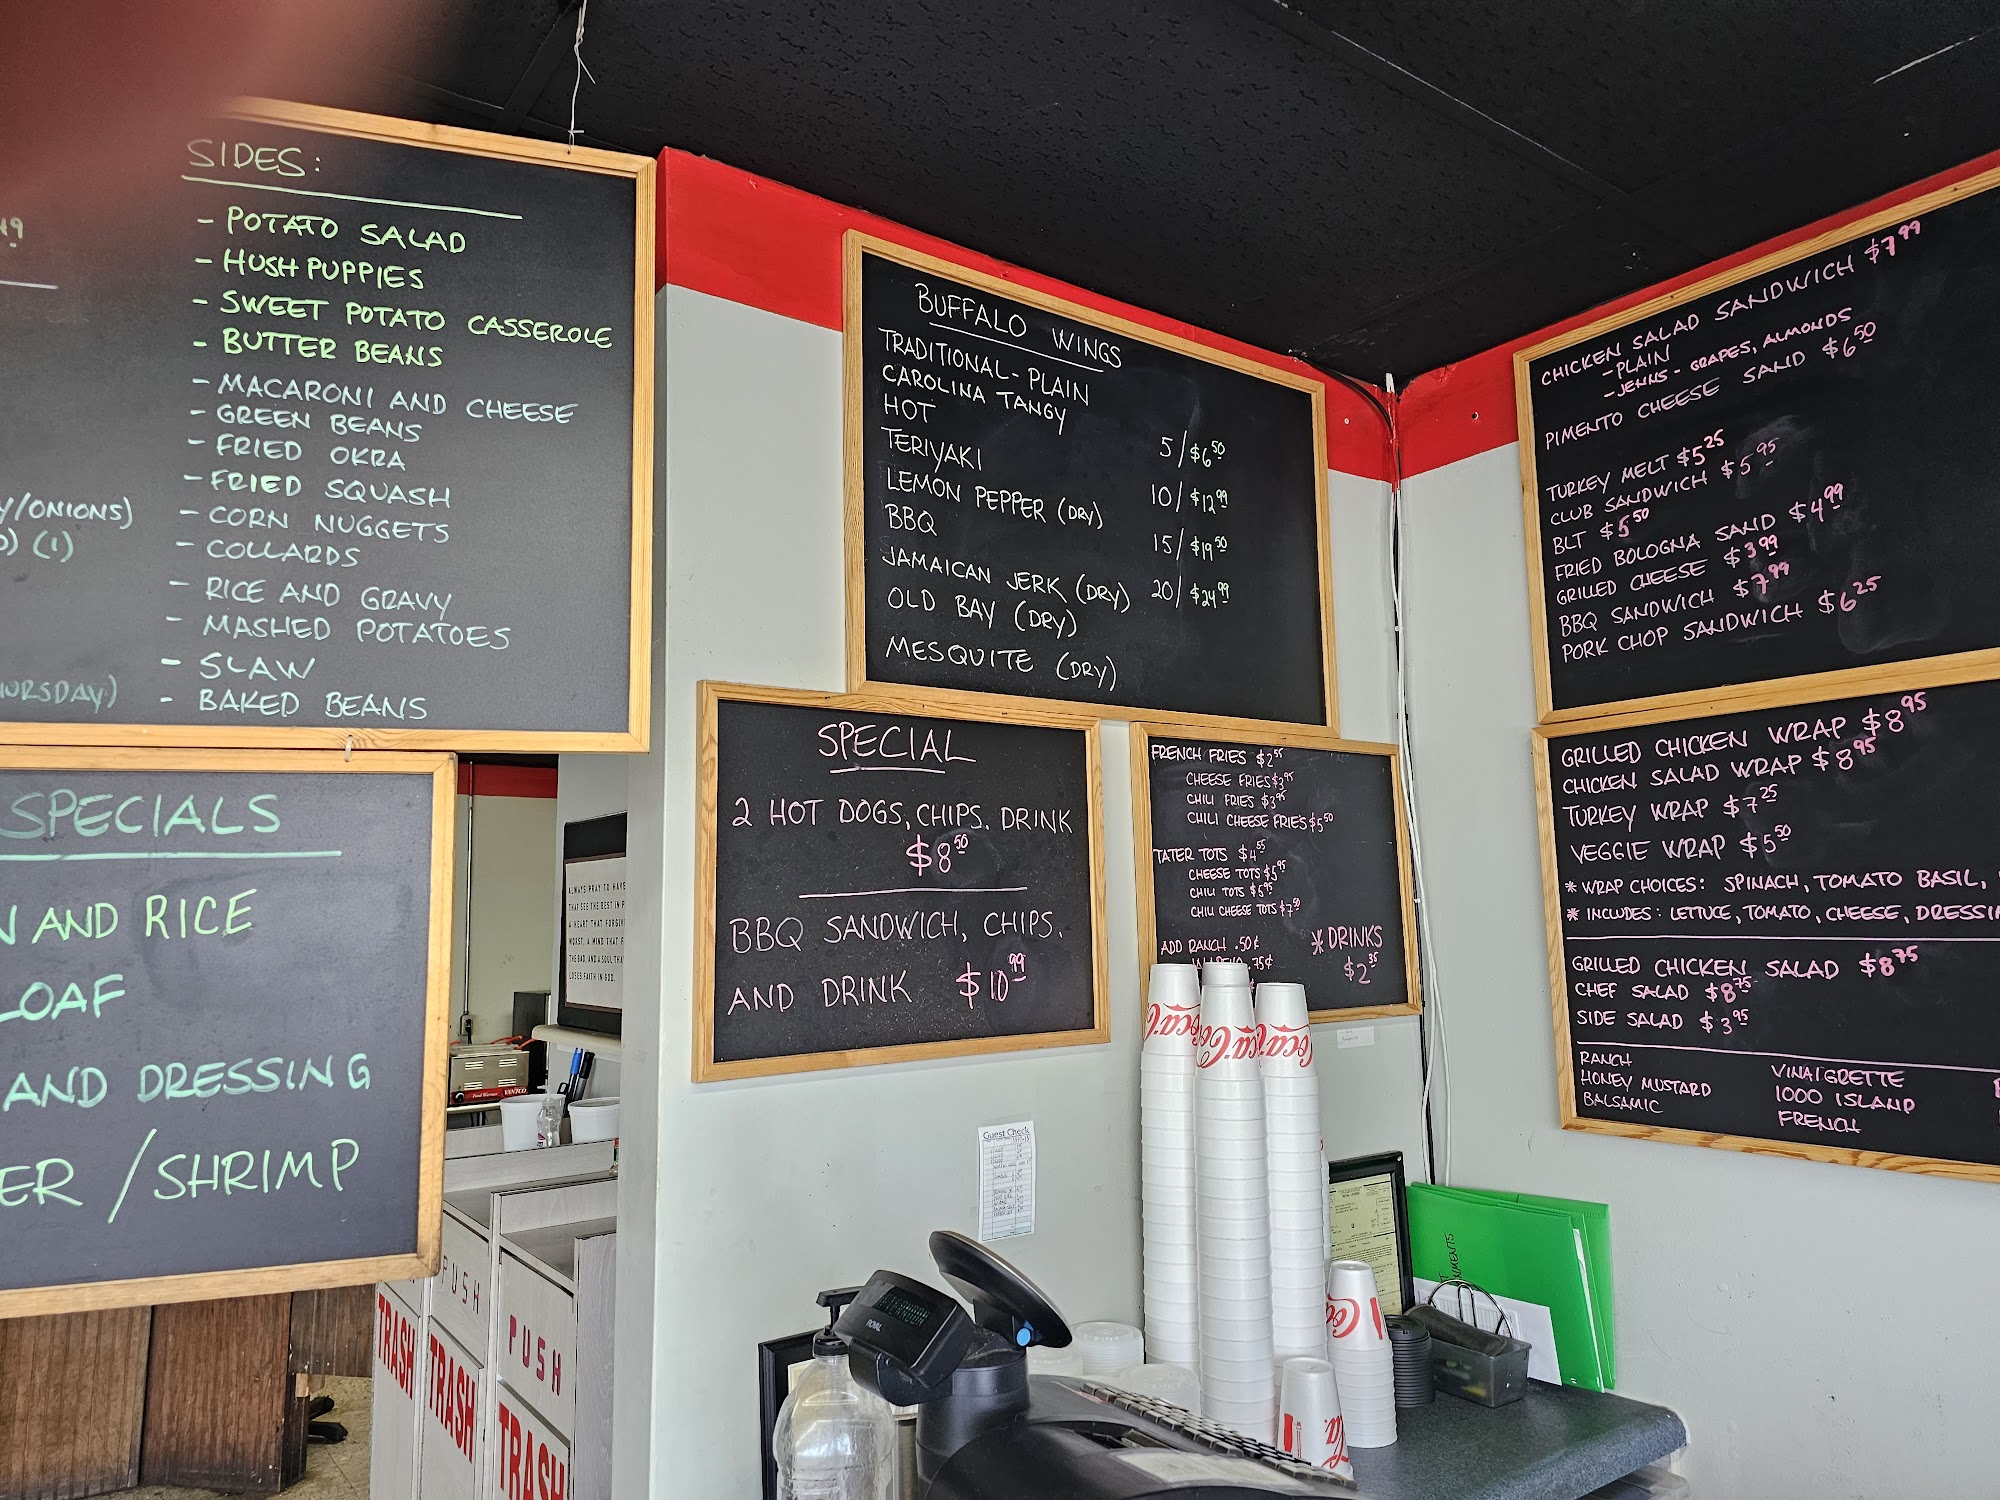 SIDES:
- POTATO SALAD
- HUSHPUPPIES
- SWEET POTATO CASSEROLE
- BUTTER BEANS
- MACARONI AND CHEESE
- GREEN BEANS
- FRIED OKRA
- FRIED SQUASH
- CORN NUGGETS
- COLLARDS
- RICE AND GRAVY
- MASHED POTATOES
- SLAW
- BAKED BEANS
/ONIONS)
(1)
SPECIALS
AND RICE
LOAF
AND DRESSING
ER / SHRIMP
BUFFALO WINGS
TRADITIONAL - PLAIN
CAROLINA TANGY
HOT
TERIYAKI 5/$6.50
LEMON PEPPER (DRY) 10/$12.99
BBQ 15/$19.50
JAMAICAN JERK (DRY) 20/$24.99
OLD BAY (DRY)
MESQUITE (DRY)
SPECIAL
2 HOT DOGS, CHIPS. DRINK
$8.50
BBQ SANDWICH, CHIPS.
AND DRINK $10.99
FRENCH FRIES $2.55
CHEESE FRIES $3.95
CHILI FRIES $3.95
CHILI CHEESE FRIES $5.50
TATER TOTS $4.55
CHEESE TOTS $5.95
CHILI TOTS $5.95
CHILI CHEESE TOTS $7.50
ADD RANCH .50¢
.75¢
* DRINKS
$2.35
CHICKEN SALAD SANDWICH $7.99
- PLAIN
- JENNS - GRAPES, ALMONDS
PIMENTO CHEESE SAND $6.50
TURKEY MELT $5.25
CLUB SANDWICH $5.95
BLT $5.50
FRIED BOLOGNA SAND $4.99
GRILLED CHEESE $3.99
BBQ SANDWICH $7.99
PORK CHOP SANDWICH $6.25
GRILLED CHICKEN WRAP $8.95
CHICKEN SALAD WRAP $8.95
TURKEY WRAP $7.25
VEGGIE WRAP $5.50
* WRAP CHOICES: SPINACH, TOMATO BASIL,
* INCLUDES: LETTUCE, TOMATO, CHEESE, DRESSIN
GRILLED CHICKEN SALAD $8.75
CHEF SALAD $8.75
SIDE SALAD $3.95
RANCH
HONEY MUSTARD
BALSAMIC
VINAIGRETTE
1000 ISLAND
FRENCH
ALWAYS PRAY TO HAVE
THAT SEE THE BEST IN P
A HEART THAT FORGIV
WORST, A MIND THAT F
THE BAD, AND A SOUL THA
LOSES FAITH IN GOD.
Guest Check
Food Warmer VANTCO
PUSH
PUSH
TRASH
TRASH
TRASH
ROYAL
Coca-Cola